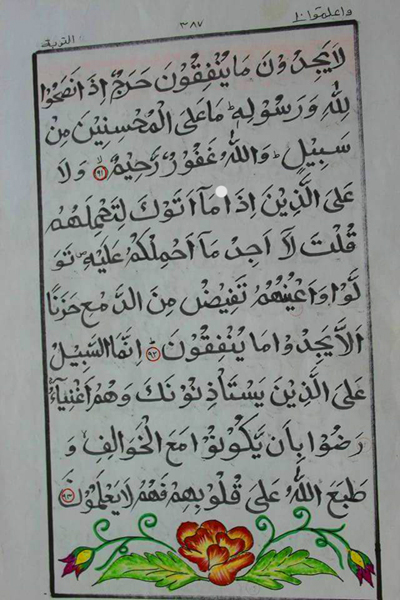 واعلموا ١٠
٣٨٧
التوبة
لَا يَجِدُوْنَ مَا يُنْفِقُوْنَ حَرَجٌ اِذَا نَصَحُوْا
لِلّٰهِ وَرَسُوْلِهٖ ؕ مَا عَلَى الْمُحْسِنِيْنَ مِنْ
سَبِيْلٍ ؕ وَاللّٰهُ غَفُوْرٌ رَّحِيْمٌ ۙ ﴿٩١﴾ وَّلَا
عَلَى الَّذِيْنَ اِذَا مَاۤ اَتَوْكَ لِتَحْمِلَهُمْ
قُلْتَ لَاۤ اَجِدُ مَاۤ اَحْمِلُكُمْ عَلَيْهِ ۪ تَوَ
لَّوْا وَّاَعْيُنُهُمْ تَفِيْضُ مِنَ الدَّمْعِ حَزَنًا
اَلَّا يَجِدُوْا مَا يُنْفِقُوْنَ ؕ ﴿٩٢﴾ اِنَّمَا السَّبِيْلُ
عَلَى الَّذِيْنَ يَسْتَاْذِنُوْنَكَ وَهُمْ اَغْنِيَآءُ ۚ
رَضُوْا بِاَنْ يَّكُوْنُوْا مَعَ الْخَوَالِفِ ۙ وَ
طَبَعَ اللّٰهُ عَلٰى قُلُوْبِهِمْ فَهُمْ لَا يَعْلَمُوْنَ ﴿٩٣﴾